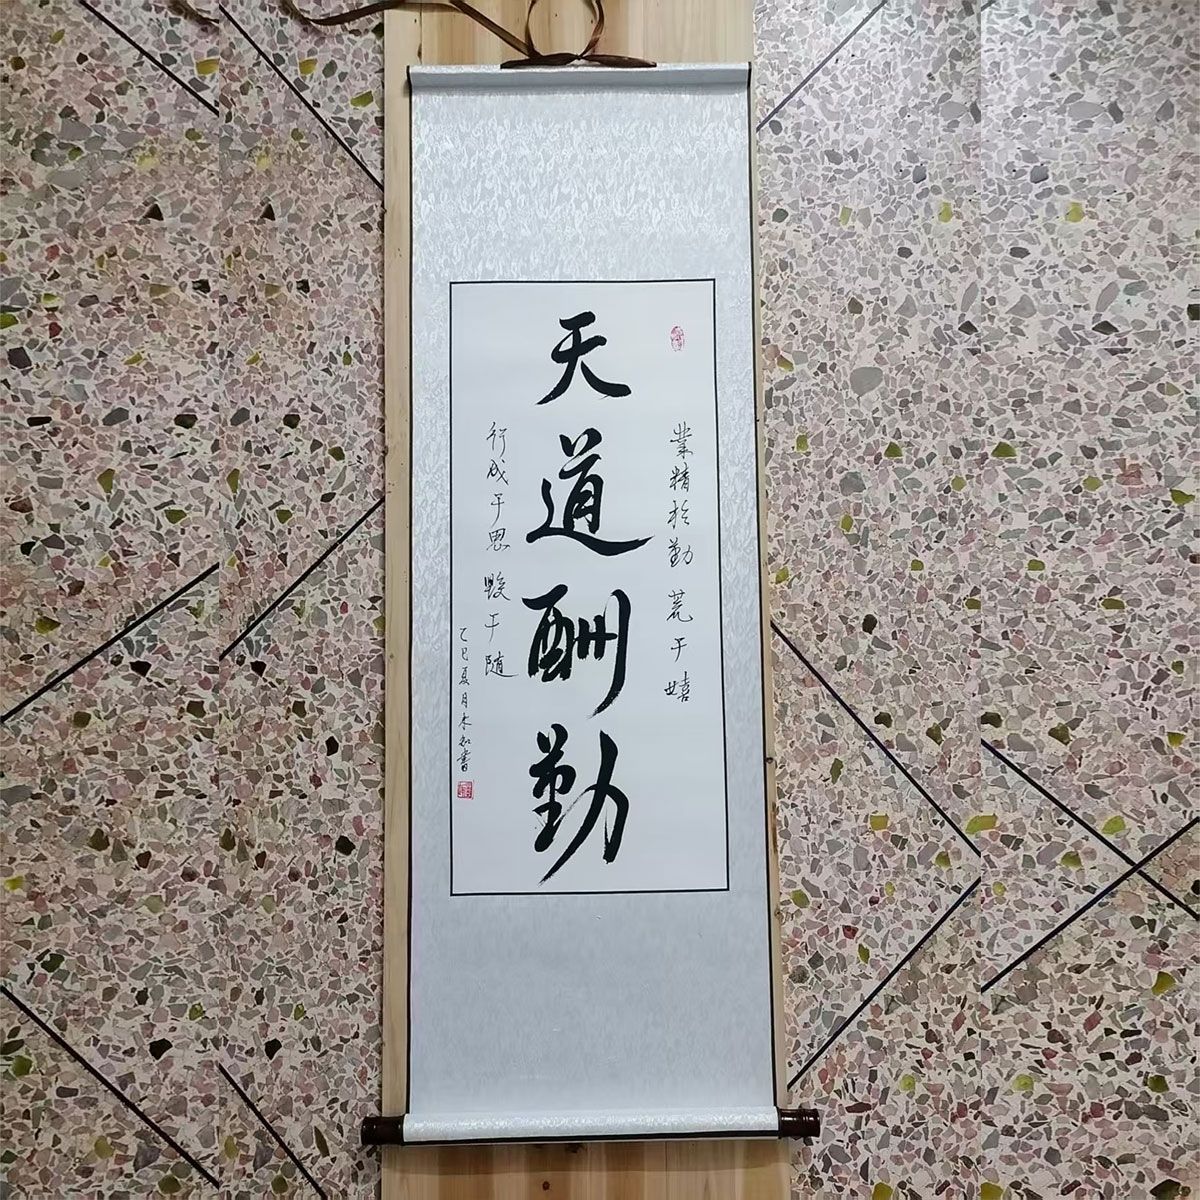 天道酬勤
業精於勤荒于嬉
行成于思毀于随
乙巳夏月本知書